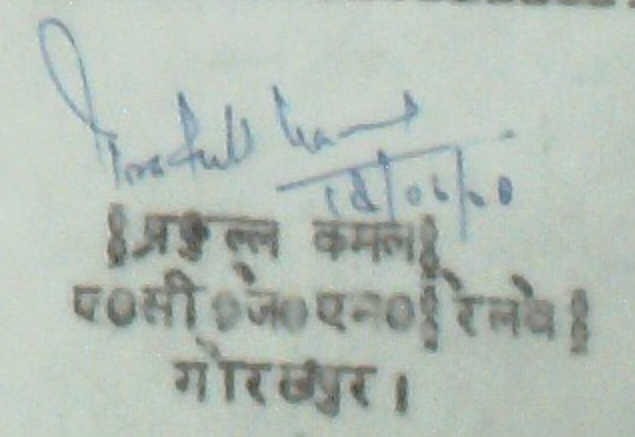 Prafull Kamal
§प्रफुल्ल कमल§
ए०सी०जे०एम०§रेलवे§
गोरखपुर।